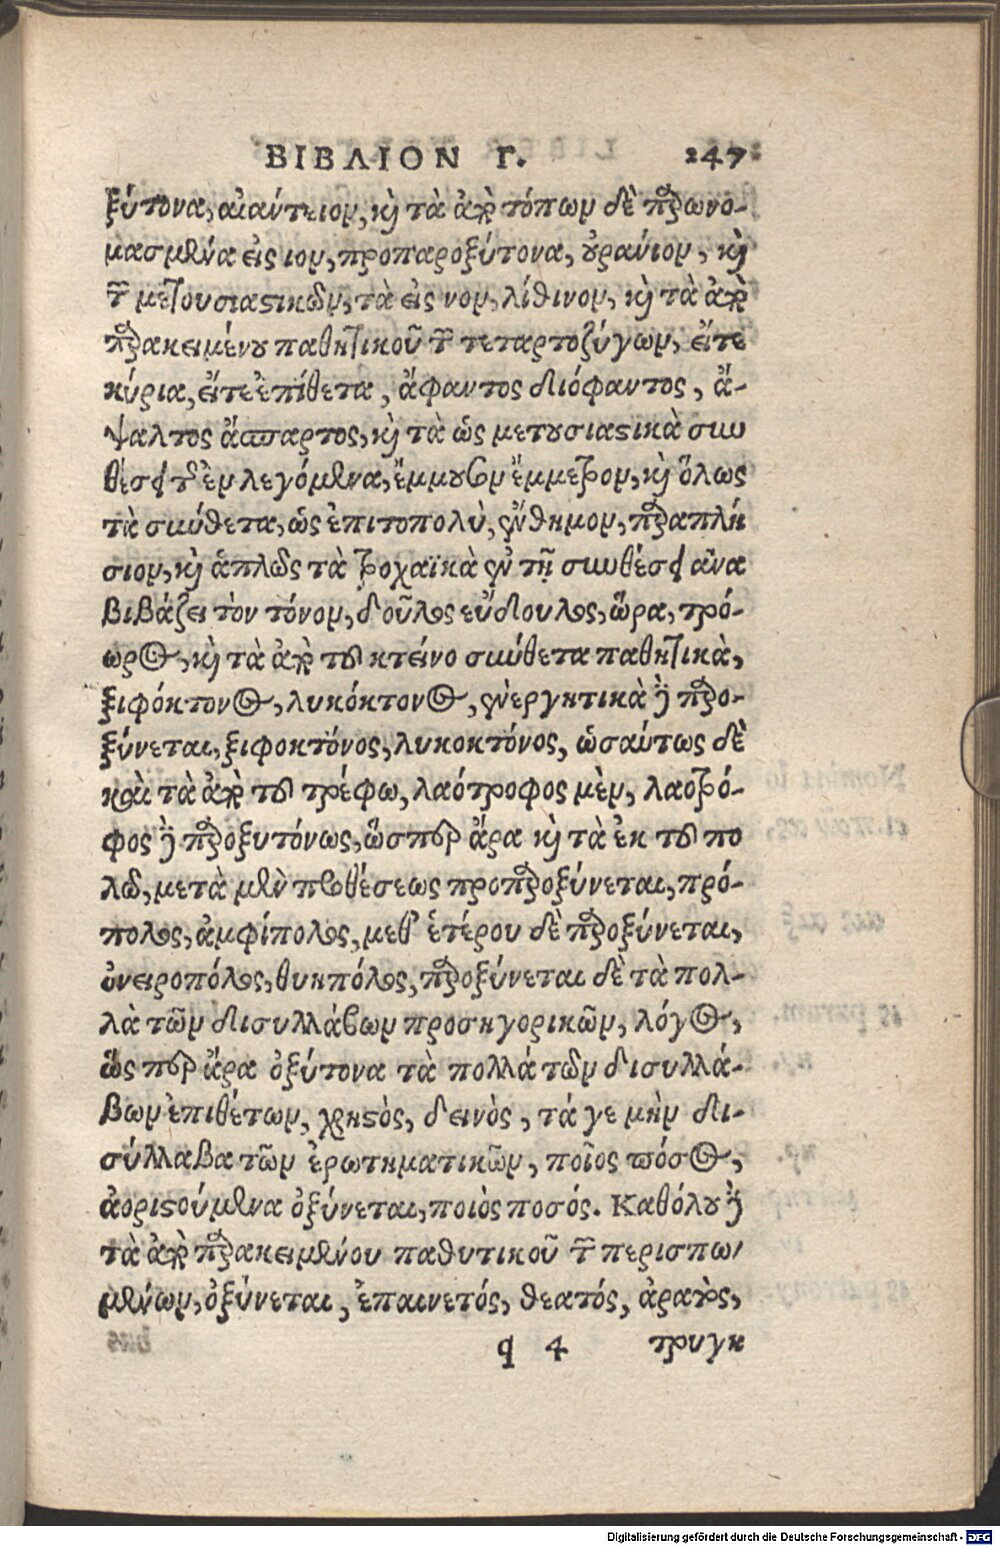 ΒΙΒΛΙΟΝ Γ. 247
ξύτονα, αἰάντειον, κỳ τὰ ἀπὸ τόπων δὲ παρωνο-
μασμένα εἰς ιον, προπαροξύτονα, οὐράνιον, κỳ
τῶν μετουσιαστικῶν, τὰ εἰς νον, λίθινον, κỳ τὰ ἀπὸ
παρακειμένου παθητικοῦ τῶν τεταρτοζύγων, εἴτε
κύρια, εἴτε ἐπίθετα, ἄφαντος διόφαντος, ἄ-
ψαλτος ἄσπαρτος, κỳ τὰ ὡς μετουσιαστικὰ συν
θέσει τῆς ἐν λεγόμενα, ἔμμουσον ἔμμετρον, κỳ ὅλως
τὰ σύνθετα, ὡς ἐπιτοπολὺ, ἔνθημον, παραπλή
σιον, κỳ ἁπλῶς τὰ τροχαϊκὰ ἐν τῇ συνθέσει ἀνα
βιβάζει τὸν τόνον, δοῦλος εὔδουλος, ὥρα, τρό-
ωρος, κỳ τὰ ἀπὸ τοῦ κτείνο σύνθετα παθητικὰ,
ξιφόκτονος, λυκόκτονος, ἐνεργητικὰ δὲ παρο-
ξύνεται, ξιφοκτόνος, λυκοκτόνος, ὡσαύτως δὲ
καὶ τὰ ἀπὸ τοῦ τρέφω, λαότροφος μὲν, λαοτρό-
φος δὲ παροξυτόνως, ὥσπερ ἄρα κỳ τὰ ἐκ τοῦ πο
λῶ, μετὰ μὲν προθέσεως προπαροξύνεται, πρό-
πολος, ἀμφίπολος, μεθ' ἑτέρου δὲ παροξύνεται,
ὀνειροπόλος, θυηπόλος, παροξύνεται δὲ τὰ πολ-
λὰ τῶν δισυλλάβων προσηγορικῶν, λόγος,
ὥς περ ἄρα ὀξύτονα τὰ πολλά τῶν δισυλλά-
βων ἐπιθέτων, χρηστὸς, δεινὸς, τά γε μὴν δι-
σύλλαβα τῶν ἐρωτηματικῶν, ποῖος πόσος,
ἀοριστούμενα ὀξύνεται, ποιὸς ποσός. Καθόλου δὲ
τὰ ἀπὸ παρακειμένου παθυτικοῦ τῶν περισπω-
μένων, ὀξύνεται, ἐπαινετός, θεατός, ἀρατός,
q 4 τρυγη
Digitalisierung gefördert durch die Deutsche Forschungsgemeinschaft - DFG